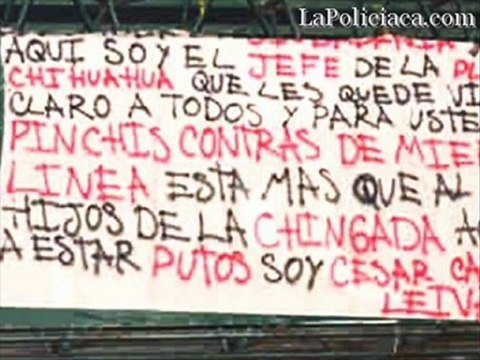 LaPoliciaca.com
AQUI SOY EL JEFE DE LA
CHIHUAHUA QUE LES QUEDE
CLARO A TODOS Y PARA
PINCHIS CONTRAS DE
LINEA ESTA MAS QUE AL
HIJOS DE LA CHINGADA
A ESTAR PUTOS SOY CESAR